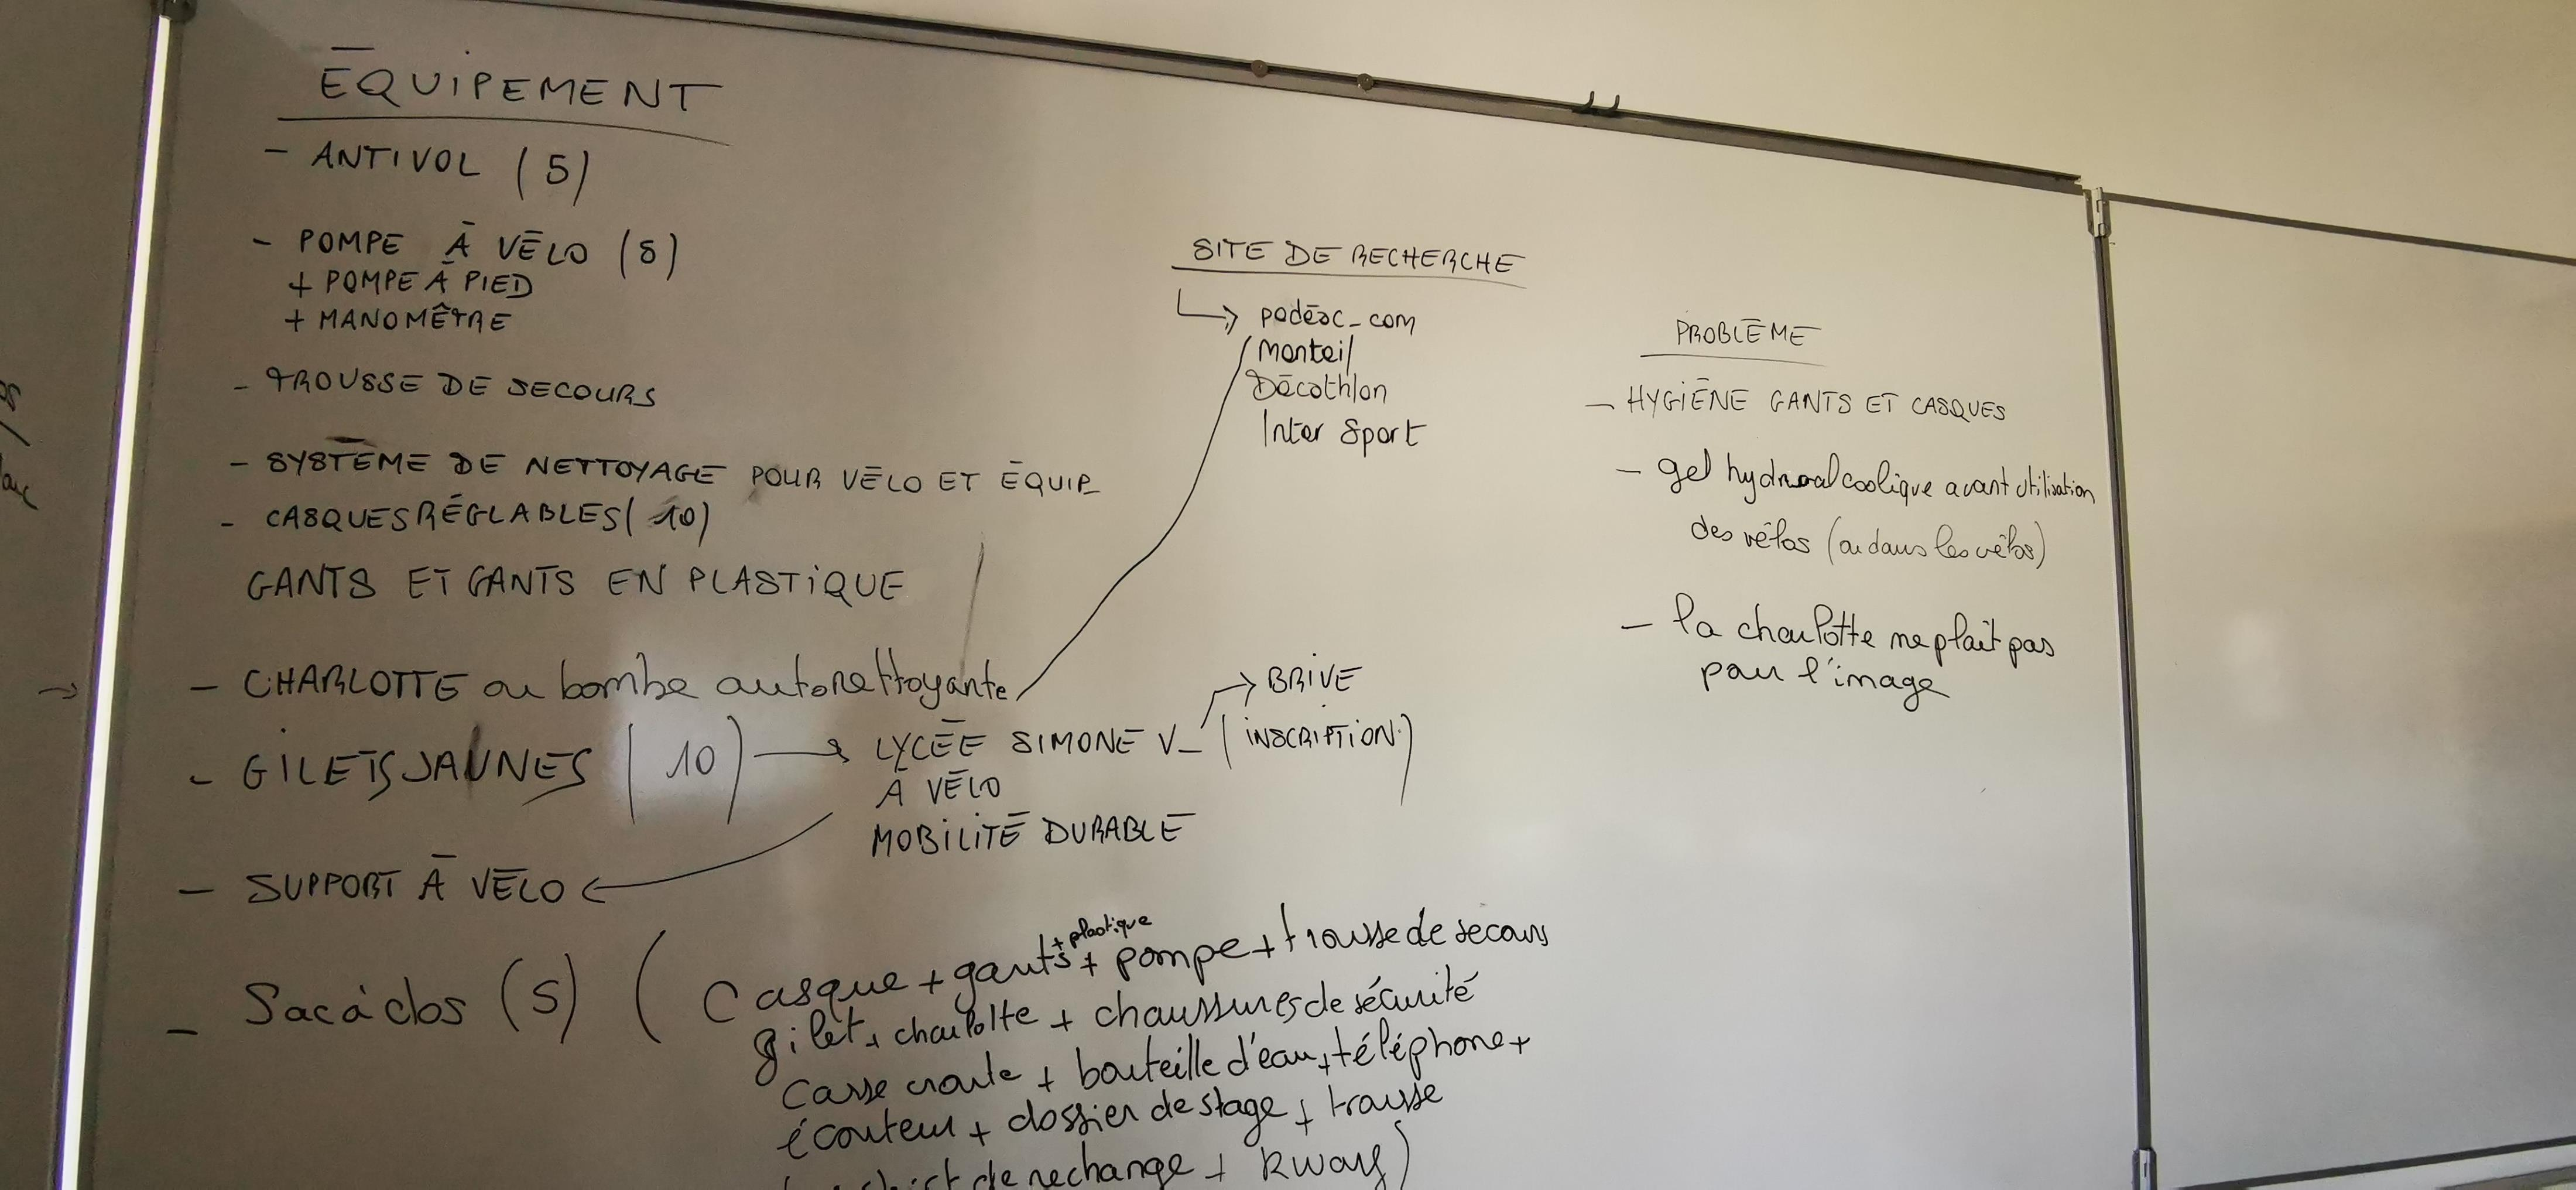 ÉQUIPEMENT
- ANTIVOL (5)
- POMPE À VÉLO (5)
+ POMPE À PIED
+ MANOMÊTRE
- TROUSSE DE SECOURS
- SYSTÈME DE NETTOYAGE POUR VÉLO ET ÉQUIP
- CASQUES RÉGLABLES (10)
GANTS ET GANTS EN PLASTIQUE
- CHARLOTTE ou bombe autonettoyante
- GILETS JAUNES (10) → LYCÉE SIMONE V_ (INSCRIPTION)
→ BRIVE
À VÉLO
MOBILITÉ DURABLE
- SUPPORT À VÉLO ←
- Sac à dos (5) (Casque + gants + pompe + trousse de secours
+ plastique
gilet + charlotte + chaussures de sécurité
casse croute + bouteille d'eau + téléphone +
écouteur + dossier de stage + trousse
de rechange + kway)
SITE DE RECHERCHE
↳ podéoc_com
Monteil
Décathlon
Inter Sport
PROBLÈME
- HYGIÈNE GANTS ET CASQUES
- gel hydroalcoolique avant utilisation
des vélos (ou dans les vélos)
- la charlotte ne plaît pas
pour l'image